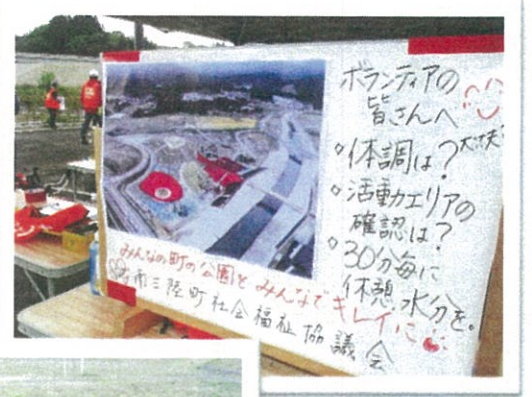 ボランティアの
皆さんへ
○体調は？大丈夫？
○活動エリアの
確認は？
○30分毎に
休憩、水分を。
みんなの町の公園をみんなでキレイに
南三陸町社会福祉協議会